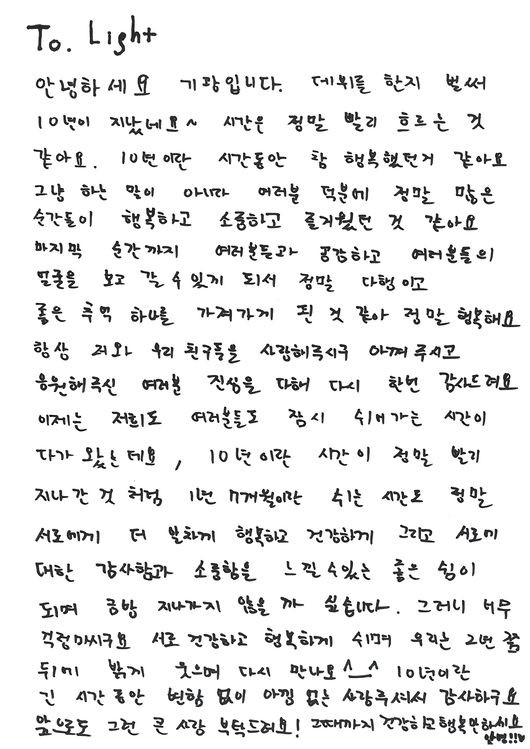 To. Light
안녕하세요 기광입니다. 데뷔를 한지 벌써
10년이 지났네요~ 시간은 정말 빨리 흐르는 것
같아요. 10년이란 시간동안 참 행복했던거 같아요
그냥 하는 말이 아니라 여러분 덕분에 정말 많은
순간들이 행복하고 소중하고 즐거웠던 것 같아요
마지막 순간까지 여러분들과 공감하고 여러분들의
얼굴을 보고 갈 수 있게 되서 정말 다행이고
좋은 추억 하나를 가져가게 된 것 같아 정말 행복해요
항상 저와 우리 친구들을 사랑해주시구 아껴주시고
응원해주신 여러분 진심을 다해 다시 한번 감사드려요
이제는 저희도 여러분들도 잠시 쉬어가는 시간이
다가왔는데요, 10년이란 시간이 정말 빨리
지나간 것처럼 1년 7개월이란 쉬는 시간도 정말
서로에게 더 알차게 행복하고 건강하게 그리고 서로에
대한 감사함과 소중함을 느낄 수 있는 좋은 쉼이
되며 금방 지나가지 않을까 싶습니다. 그러니 너무
걱정마시구요 서로 건강하고 행복하게 쉬며 우리는 2년 쫌
뒤에 밝게 웃으며 다시 만나요^_^ 10년이란
긴 시간동안 변함 없이 아낌 없는 사랑주셔서 감사하구요
앞으로도 그런 큰 사랑 부탁드려요! 그때까지 건강하고 행복만하시요
안녕!!